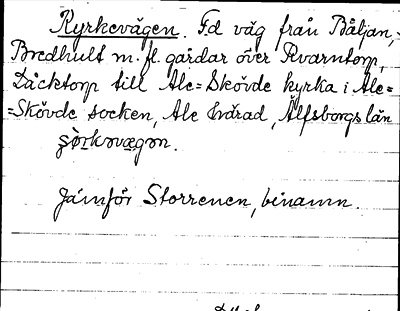 Kyrkevägen. F.d väg från Båljan,
Bredhult m. fl. gårdar över Kvarntorp,
Täcktorp till Ale-Skövde kyrka i Ale-
-Skövde socken, Ale härad, Älfsborgs län
Jämför Storrenen, binamn.